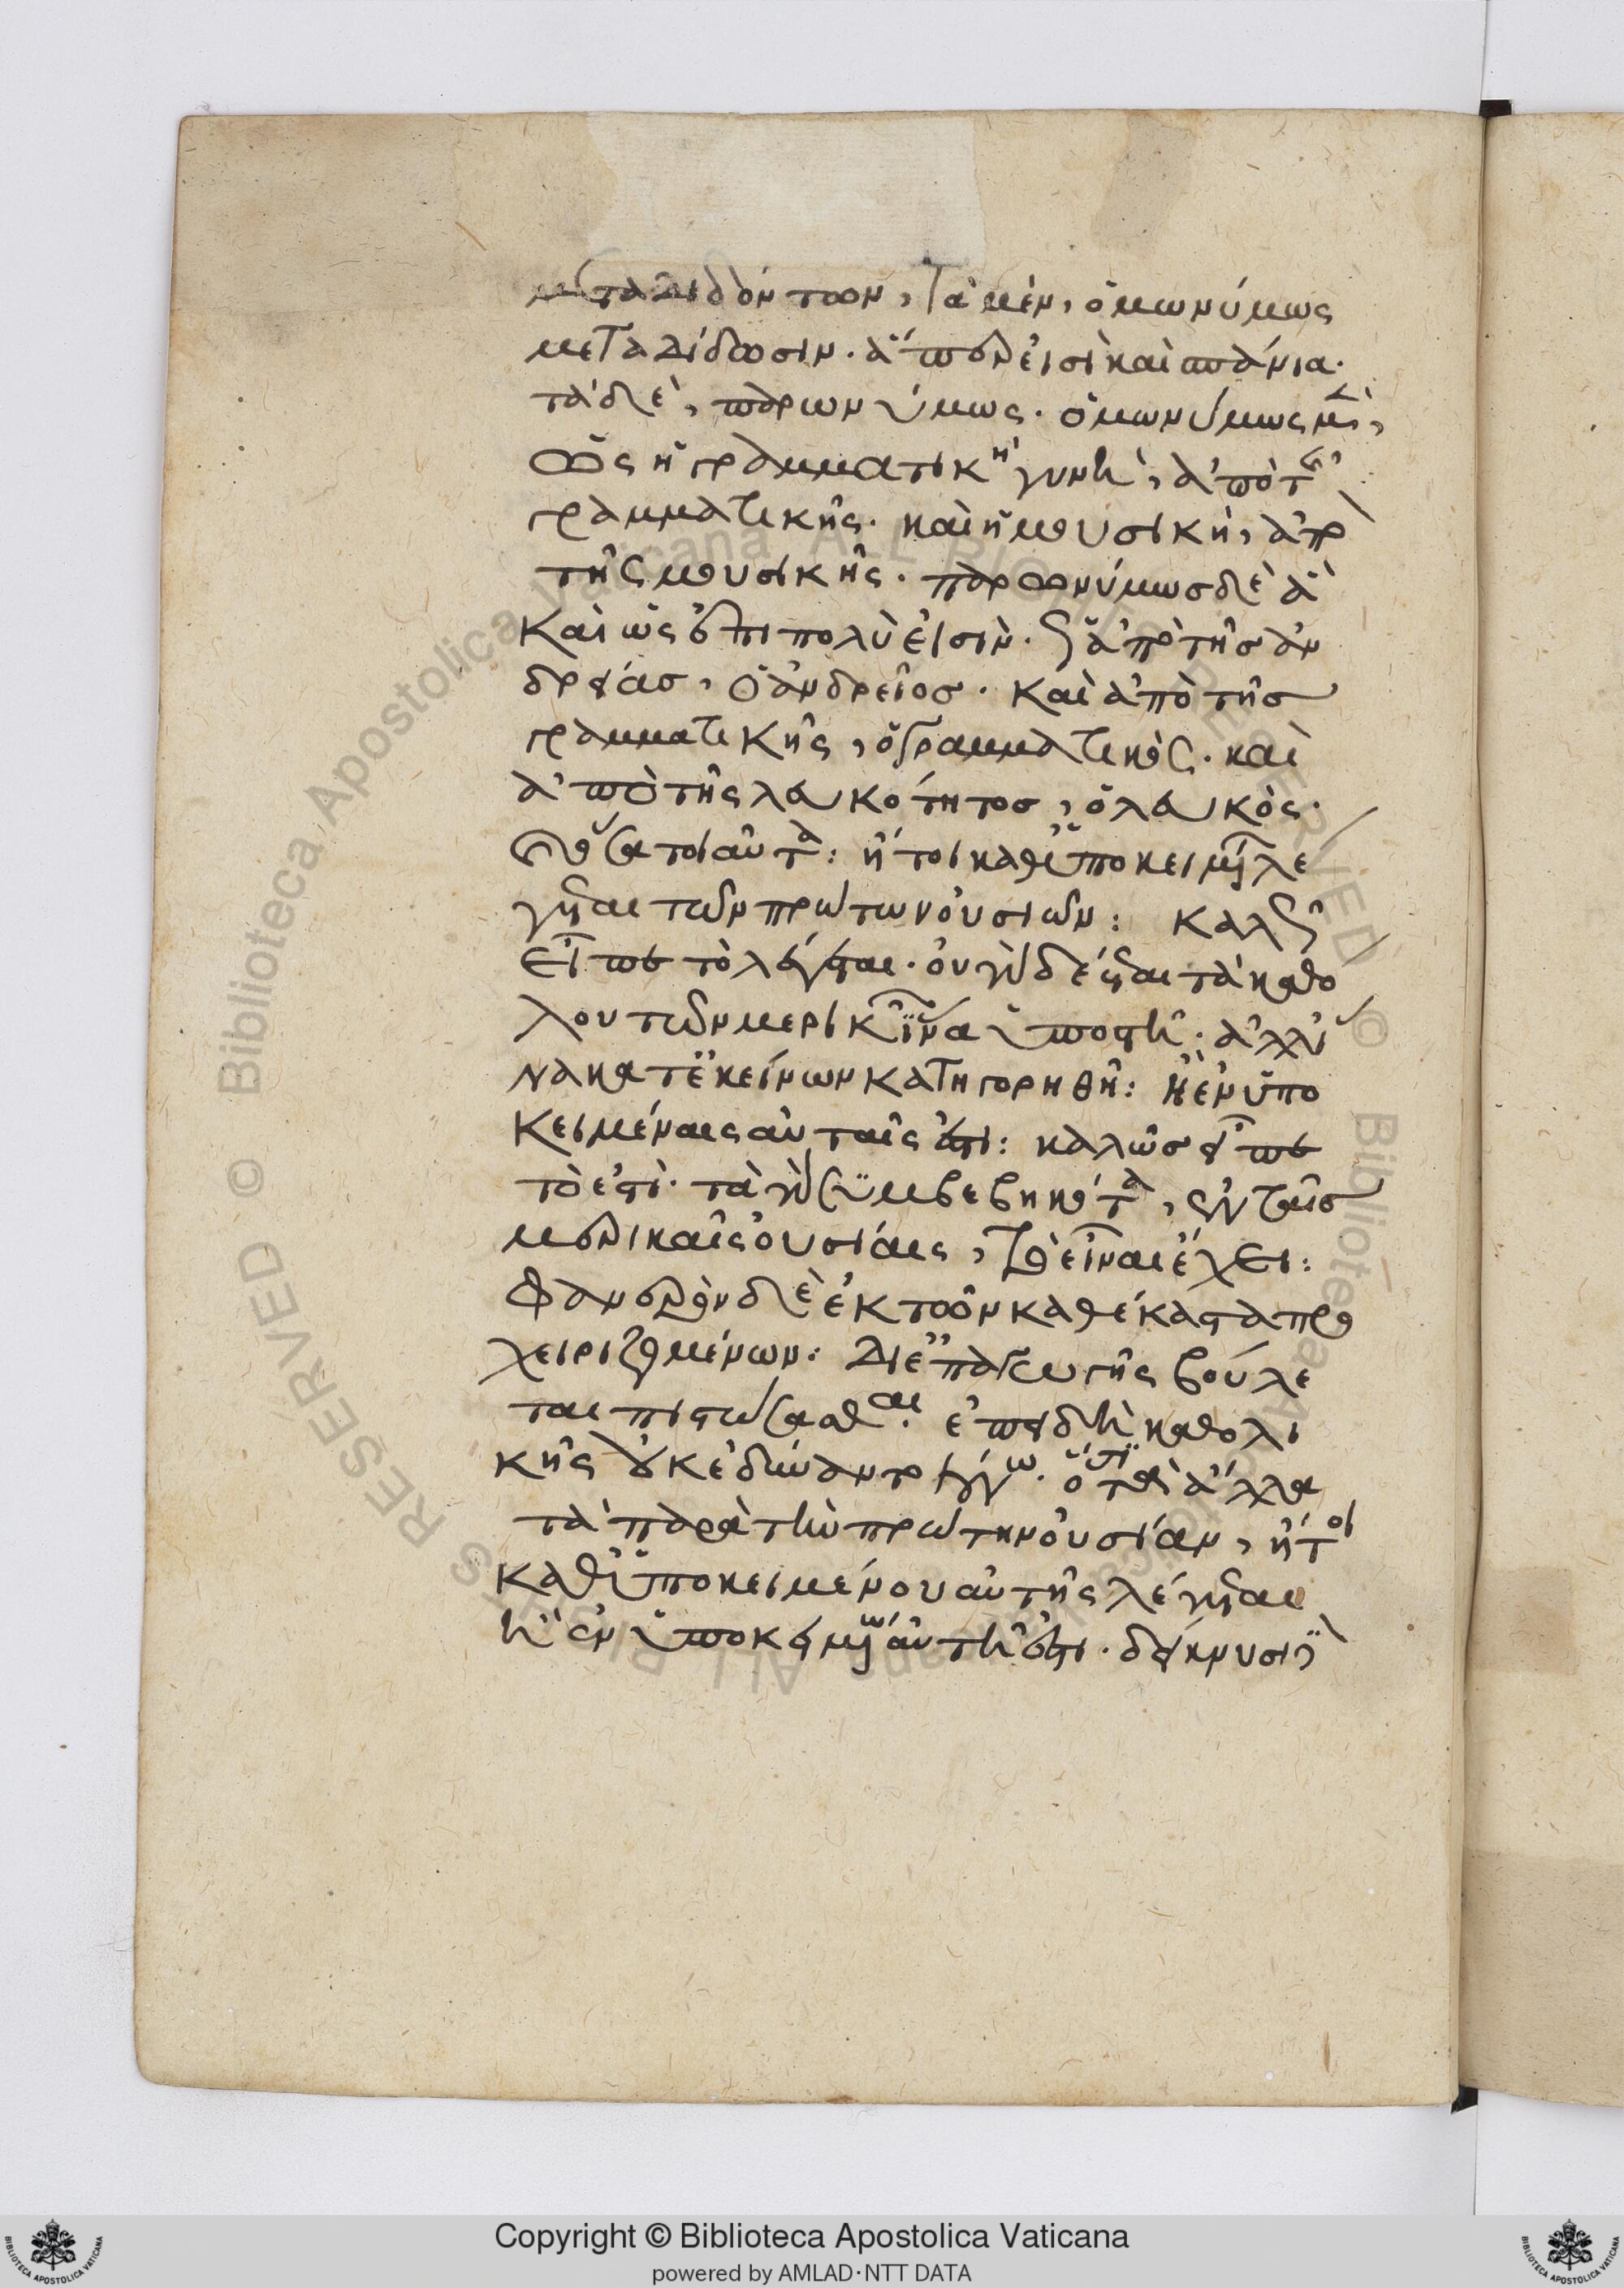 μεταδιδόντων, τὰ μὲν, ὁμωνύμως
μεταδίδωσιν. ἅπερ εἰσὶ καὶ σπάνια.
τὰ δὲ, παρωνύμως. ὁμωνύμως μὲν,
ὡς ἡ γραμματικὴ γυνὴ, ἀπὸ τῆς
γραμματικῆς. καὶ ἡ μουσικὴ, ἀπὸ
τῆς μουσικῆς. παρωνύμως δὲ ἃ
καὶ ὡς ἐπιπολὺ εἰσὶν. ὡς ἀπὸ τῆς ἀν
δρείας, ὁ ἀνδρεῖος. καὶ ἀπὸ τῆς
γραμματικῆς, ὁ γραμματικὸς. καὶ
ἀπὸ τῆς λευκότητος, ὁ λευκὸς.
καὶ ὅσα τοιαῦτα: ἤτοι καθ' ὑποκειμένων λέ
γεται τῶν πρώτων οὐσιῶν: καλῶς
εἶπε τὸ λέγεται. οὐ γὰρ δέεται τὰ καθό
λου τῶν μερικῶν ἵνα ὑποστῆ. ἀλλ' ἵ
να κατ' ἐκείνων κατηγορηθῆ: ἢ ἐν ὑπο
κειμέναις αὐταῖς ἐστι: καλῶς εἶπε
τὸ ἐστὶ. τὰ γὰρ συμβεβηκότα, ἐν ταῖς
μερικαῖς οὐσίαις, τὸ εἶναι ἔχει:
Φανερὸν δὲ ἐκ τῶν καθέκαστα προ
χειριζομένων: Δι' ἐπαγωγῆς βούλε
ται πιστώσασθαι. ἐπειδὴ καθολι
κῆς οὐκ ἐδύναντο λόγω. ὅτι τὰ ἄλλα
τὰ παρὰ τὴν πρώτην οὐσίαν, ἤτοι
καθ' ὑποκειμένου αὐτῆς λέγεται
ἢ ἐν ὑποκειμένω αὐτῆ ἐστι. δείκνυσιν
Copyright © Biblioteca Apostolica Vaticana
powered by AMLAD·NTT DATA